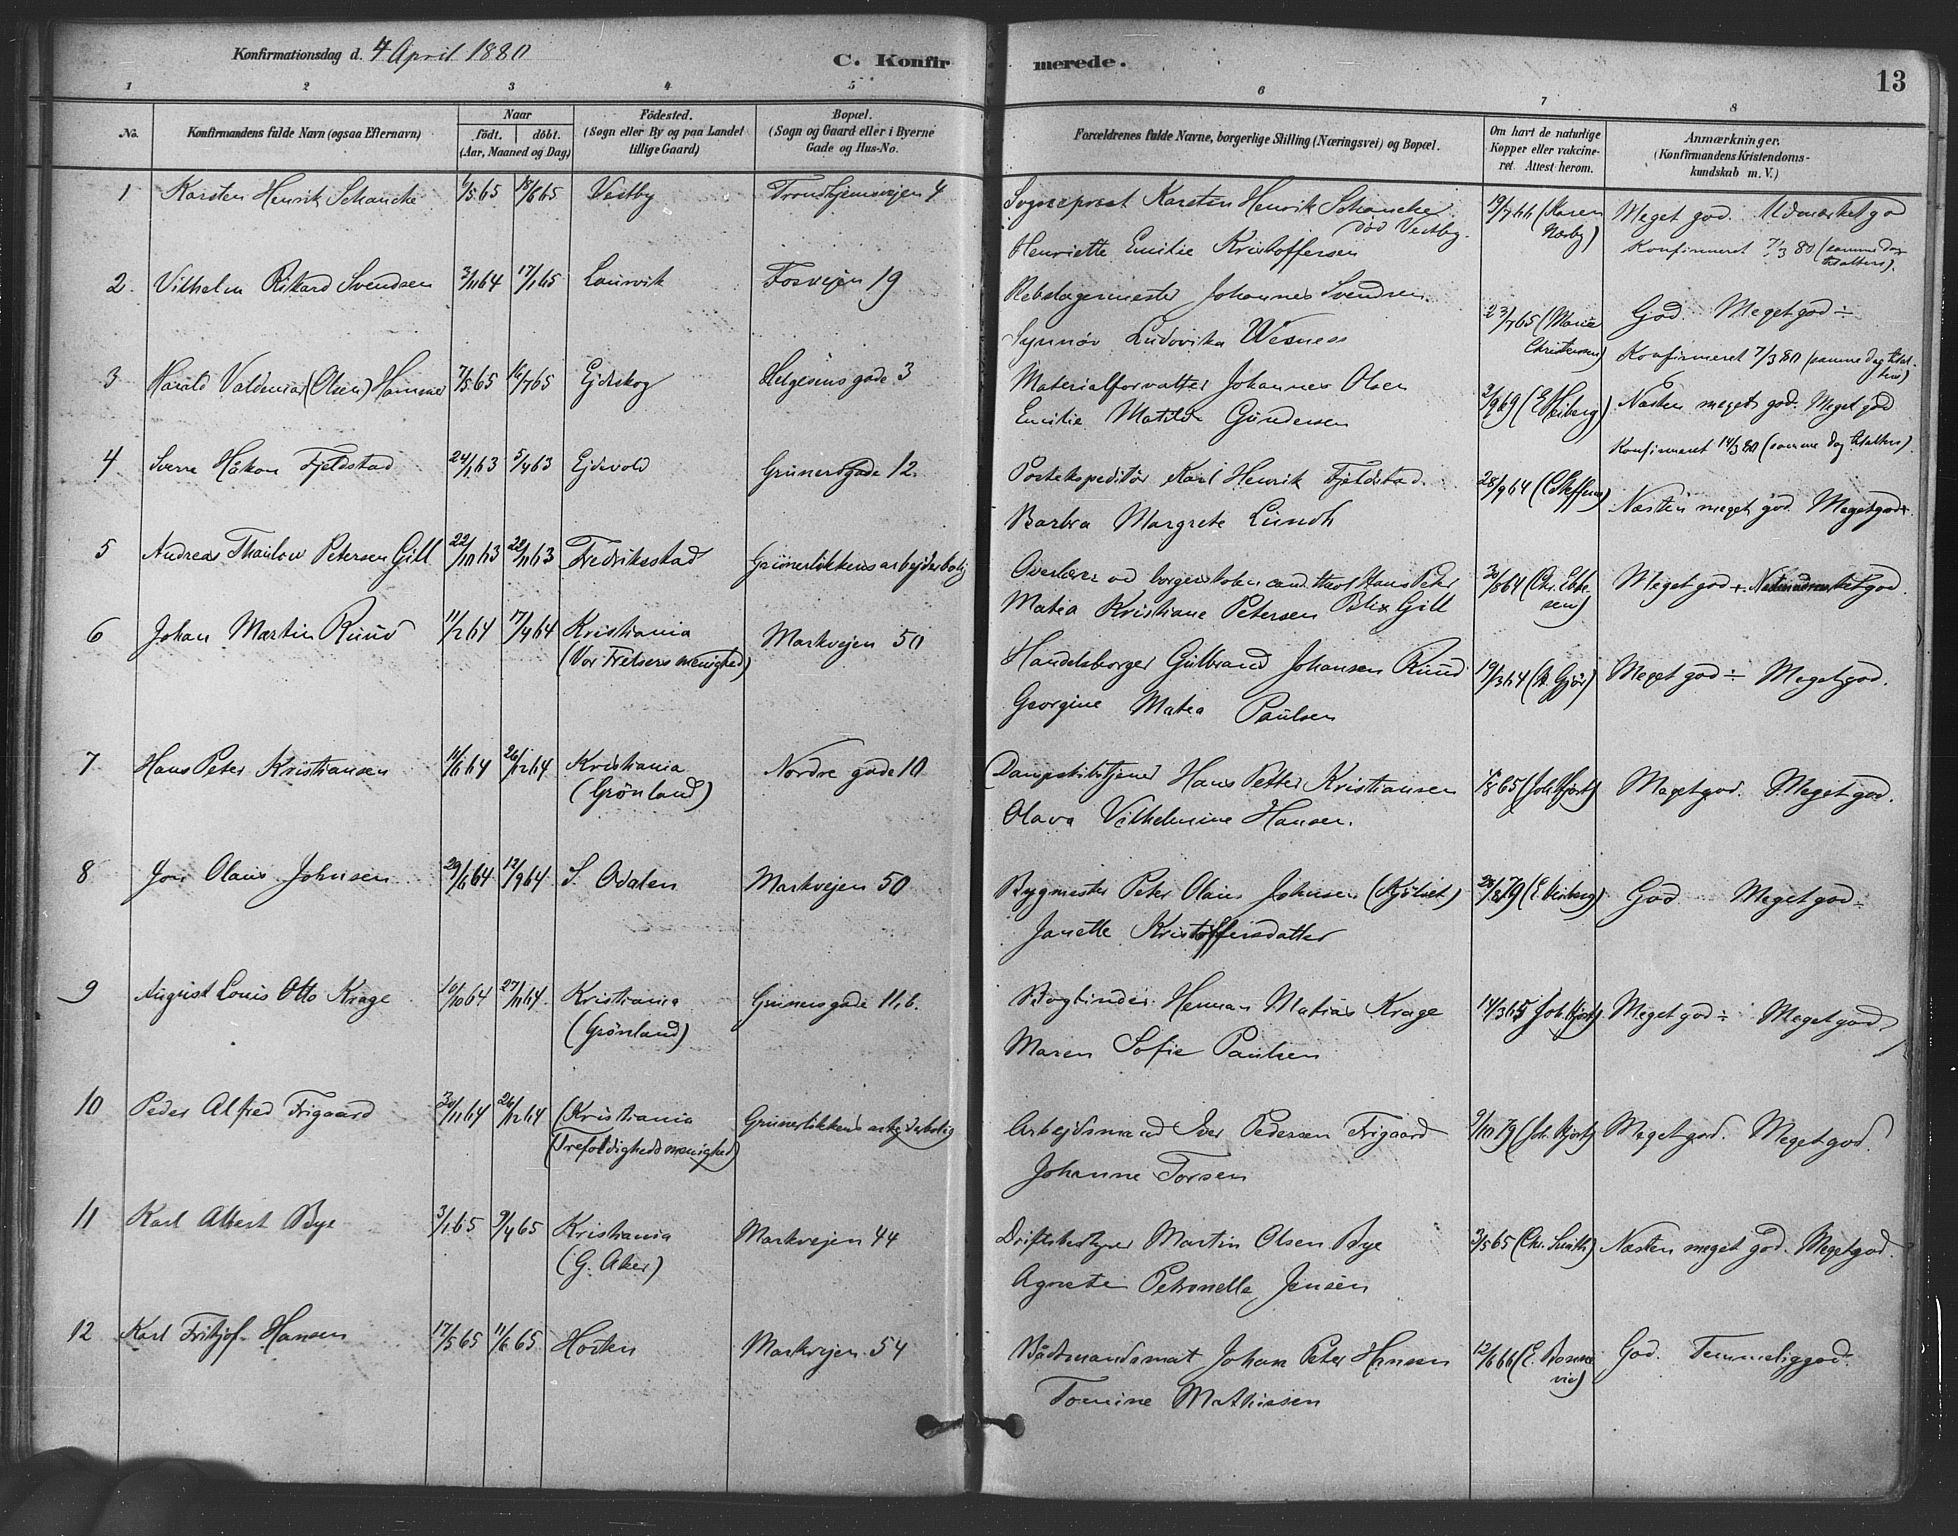 Konfirmationsdag d. 4 April 1880
C. Konfirmerede.
13
1 2 3 4 5 6 7 8
No.
Konfirmandens fulde Navn (ogsaa Efternavn)
Naar
födt. döbt.
(Aar, Maaned og Dag)
Födested.
(Sogn eller By og paa Landet
tillige Gaard)
Bopæl.
(Sogn og Gaard eller i Byerne
Gade og Hus-No.
Forældrenes fulde Navne, borgerlige Stilling (Næringsvei) og Bopæl.
Om havt de naturlige
Kopper eller vakcine-
ret. Attest herom.
Anmærkninger.
(Konfirmandens Kristendoms-
kundskab m. V.)
1 Karsten Henrik Schancke 1/5 65 18/6 65 Vestby Trondhjemsvejen 4
Sogneprest Karsten Henrik Schancke
død Vestby.
Henriette Emilie Kristoffersen
19/7 66 (Karen
Næsby)
Meget god. Udmærket god
Konfirmeret 7/3 80 (samme dag
til alters).
2 Vilhelm Rikard Svendsen 3/11 64 17/1 65 Laurvik Fosvejen 19
Rebslagermester Johannes Svendsen
Synnøv Ludovika Wesness
23/7 65 (Marie
Christensen)
God Meget god ÷
Konfirmeret 7/3 80 (samme dag til al-
ters)
3 Harald Valdemar (Olsen) Hammer 7/5 65 16/7 65 Ejdskog Helgesens gade 3
Materialforvalter Johannes Olsen
Emilie Matilde Gundersen
2/9 69 (E Heiberg)
Næsten meget god. Meget god
Konfirmeret 14/3 80 (samme dag til alters).
4 Sverre Håkon Fjeldstad 24/1 63 5/4 63 Ejdsvold Grünersgade 12.
Postekspeditör Karl Henrik Fjeldstad.
Barbra Margrete Lundh
28/9 64 (C Steffens)
Næsten meget god. Meget god.
5 Andreas Thaulow Petersen Gill 22/10 63 22/11 63 Fredriksstad Grünerløkkens arbejderbolig
Overlærer ved borgerskolen cand. theol Hans Peter
Petersen Gill
Matea Kristiane Petersen
30/8 64 (Chr. Ebbe-
sen)
Meget god +. Næsten udmærket god.
6 Johan Martin Ruud 11/2 64 17/4 64 Kristiania Markvejen 50
(Vor Frelsers menighed)
Handelsborger Gulbrand Johansen Ruud
Georgine Matea Paulsen
19/3 64 (A. Gjör)
Meget god ÷ Meget god.
7 Hans Peter Kristiansen 11/6 64 26/12 64 Kristiania Nordre gade 10
(Grønland)
Dampskibstjener Hans Petter Kristiansen
Olava Vilhelmine Hansen.
1/8 65 (Joh Hjort)
Meget god. Meget god.
8 Jon Olaus Johnsen 29/6 64 12/9 64 S. Odalen Markvejen 50
Bygmester Peter Olaus Johnsen (Kjölset)
Janette Kristoffersdatter
28/8 79 (E. Heiberg)
God Meget god ÷
9 August Louis Otto Krage 10/10 64 27/11 64 Kristiania Grünersgade 11, b.
(Grønland)
Bogbinder Herman Matias Krage
Maren Sofie Paulsen
14/3 65 (Joh. Hjort)
Meget god ÷ Meget god.
10 Peder Alfred Frigaard 30/11 64 26/12 64 (Kristiania Grünerløkkens arbejderbolig
(Trefoldigheds menighed)
Arbejdsmand Iver Pedersen Frigaard
Johanne Torsen
9/10 79 (Joh. Hjort)
Meget god. Meget god.
11 Karl Albert Bye 3/1 65 9/4 65 Kristiania Markvejen 44
(G. Aker)
Driftsbestyrer Martin Olsen Bye
Agnete Petronelle Jensen
3/5 65 (Chr. Smith)
Næsten meget god. Meget god.
12 Karl Fritjof Hansen 17/5 65 11/6 65 Horten Markvejen 54
Bådsmandsmat Johan Peter Hansen
Tomine Mathissen
12/6 66 (E. Bonne-
vie)
God. Temmelig god.